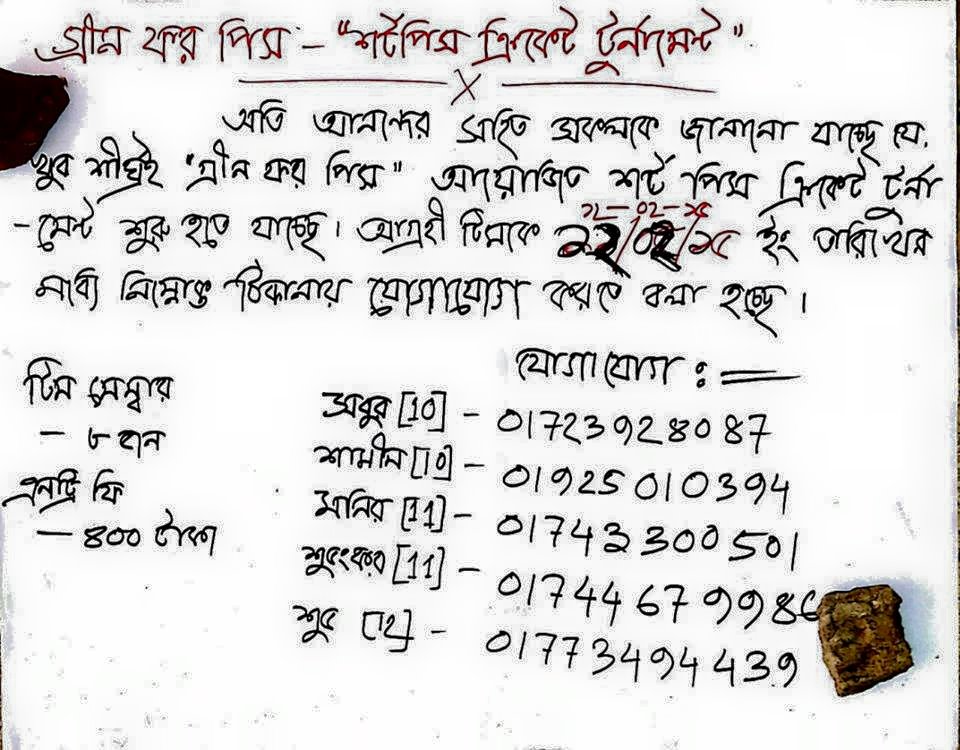 গ্রীন ফর পিস - "শর্টপিস ক্রিকেট টুর্নামেন্ট"
অতি আনন্দের সহিত সকলকে জানানো যাচ্ছে যে,
খুব শীঘ্রই "গ্রীন ফর পিস" আয়োজিত শর্ট পিস ক্রিকেট টুর্না
- মেন্ট শুরু হতে যাচ্ছে। আগ্রহী টিমকে ইং তারিখের
মধ্যে নিম্নোক্ত ঠিকানায় যোগাযোগ করতে বলা হচ্ছে।
যোগাযোগ :
টিম মেম্বার
- ৮ জন
এনট্রি ফি
- ৪০০ টাকা
সবুর [10] - 01723928087
শামীম [10] - 01925010394
মনির [11] - 01743300501
শুভংকর [11] - 0174467998
শুভ [12] - 01773494439